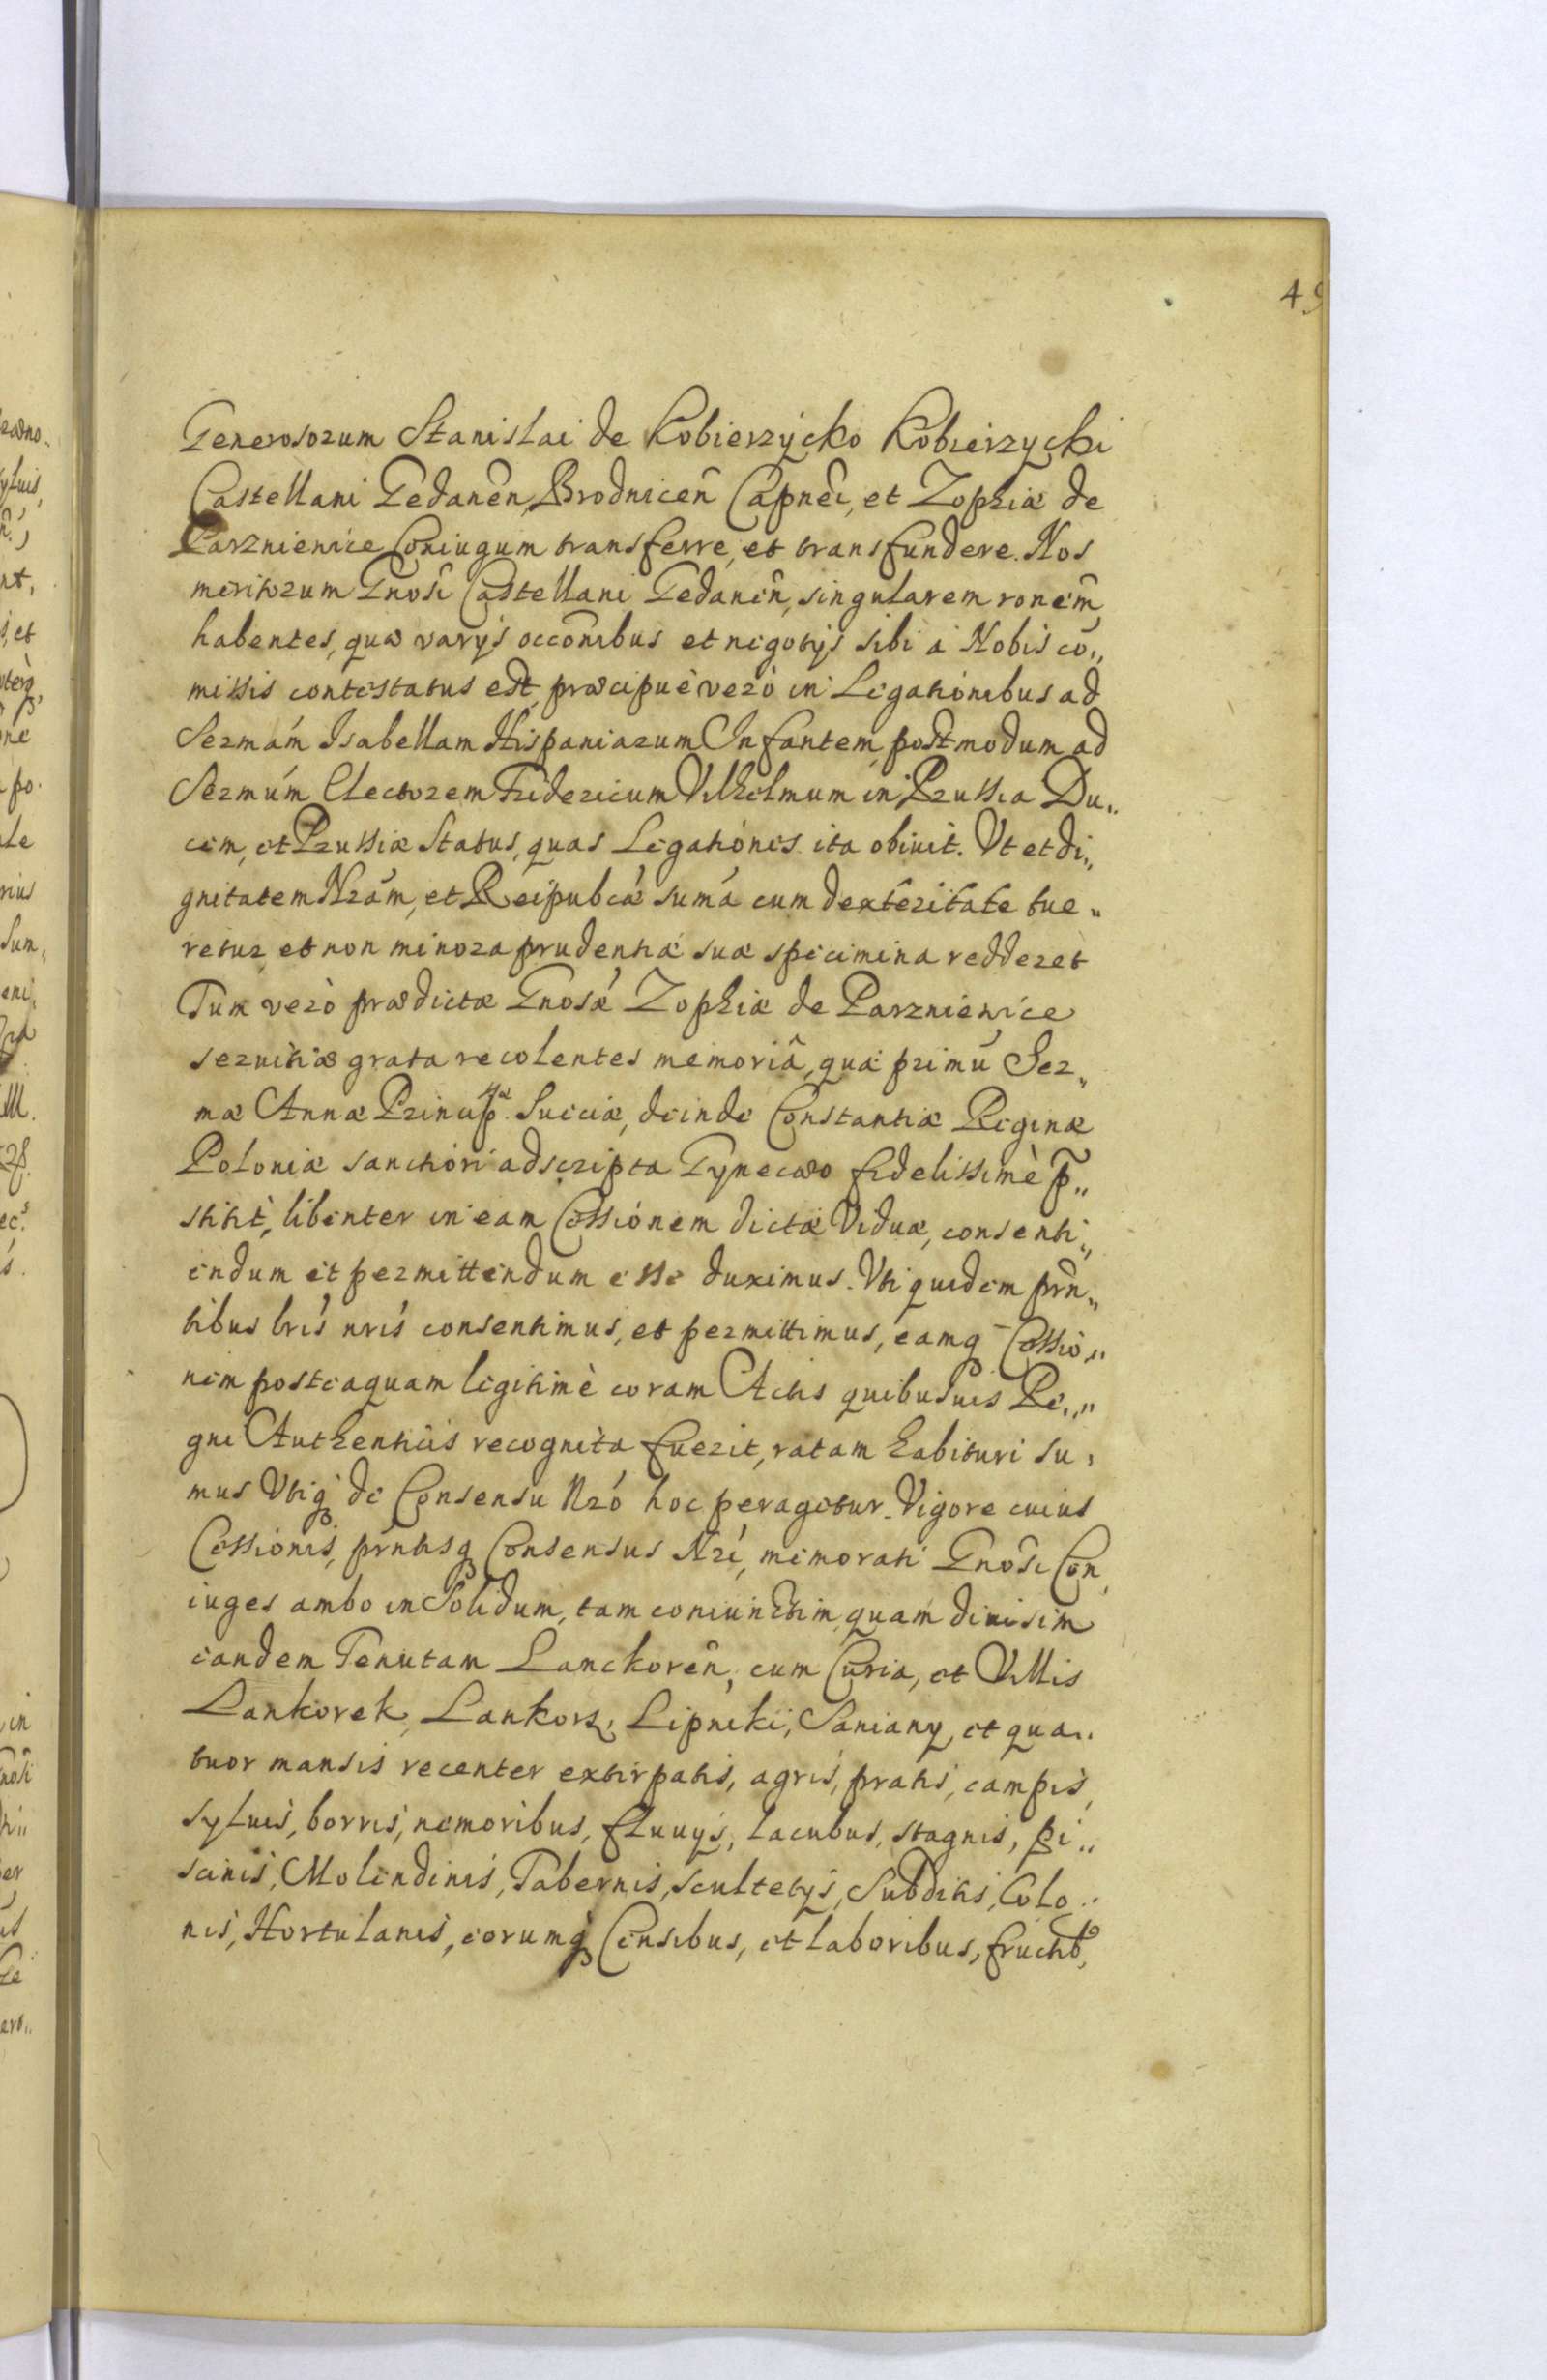 49
Generosorum Stanislai de Kobierzycko Kobierzycki
Castellani Gedanen̄, Brodnicen̄ Capnei, et Zophiæ de
Parznienice Coniugum transferre, et transfundere. Nos
meritorum Gnosi Castellani Gedanen̄, singularem ronem
habentes, quæ varys occōnibus et negotys sibi á Nobis cō„
missis contestatus est, præcipuè verò in Legationibus ad
Sermám Isabellam Hispaniarum Infantem, postmodum ad
Sermúm Electorem Fridericum Vilhelmum in Prussia Du„
cem, et Prussiæ Status, quas Legationes ita obiuit. Vt et di„
gnitatem Nrám, et Reipubcæ sumá cum dexteritate tue„
retur, et non minora prudentiæ suæ specimina redderet
Tum verò prædictæ Gnosæ Zophiæ de Parznienice
seruitia grata recolentes memoriâ, quæ primū Ser„
mæ Annæ Princip. Sueciæ, deinde Constantiæ Reginæ
Poloniæ sanctiori adscripta Gynecæo fidelissimè p̃„
stitit, libenter in eam Cessionem dictæ Viduæ, consenti„
endum et permittendum esse duximus. Vti quidem prn̄„
tibus lrís nrís consentimus, et permittimus, eamq Cessio„
nem posteaquam legitimè coram Actis quibusuis Re„
gni Authenticis recognita fuerit, ratam habituri su„
mus Vtiq de Consensu Nró hoc peragetur. Vigore cuius
Cessionis, prntisq Consensus Nrí, memorati Gnosi Con„
iuges ambo in Solidum, tam coniunctim quam diuisim
eandem Tenutam Lanckoren̄, cum Curia, et Villis
Lankorek, Lankorz, Lipniki, Saniany, et qua„
tuor mansis recenter extirpatis, agris, pratis, campis,
syluis, borris, nemoribus, fluuys, lacubus, stagnis, pi„
scinis, Molendinis, Tabernis, scultetys, Subditis, Colo„
nis, Hortulanis, eorumq Censibus, et laboribus, fructib9,